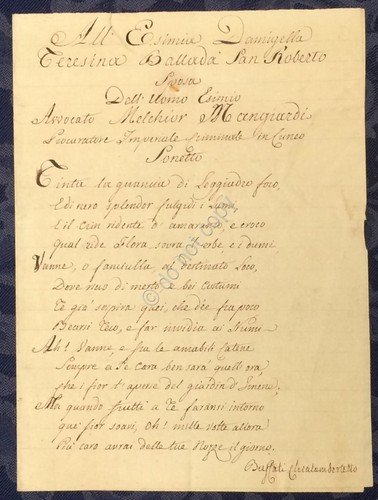 All' Esimia Damigella
Teresina Ballada San Roberto
Sposa
Dell' Uomo Esimio
Avvocato Melchior Mangiardi
Procuratore Imperiale Criminale in Cuneo
Sonetto
Tinta la guancia di leggiadro foco,
E di raro splendor fulgidi i lumi,
E il crin ridente d' amaranto, e croco
Qual ride Flora sovra l'erbe, e i dumi
Vanne, o fanciulla al destinato loco,
Dove nus di merto e bei costumi
Te già sospira quei, che dee fra poco
Bearsi teco, e far invidia ai Numi
Ah! Vanne e fra le amabili catene
Sempre a te cara ben sarà quell' ora
che i fior t' aperse del giardin d' Imene,
Ma quando frutti a te faransi intorno
que' fior soavi, Oh! mille volte allora
Più caro avrai delle tue Nozze il giorno.
do not copy